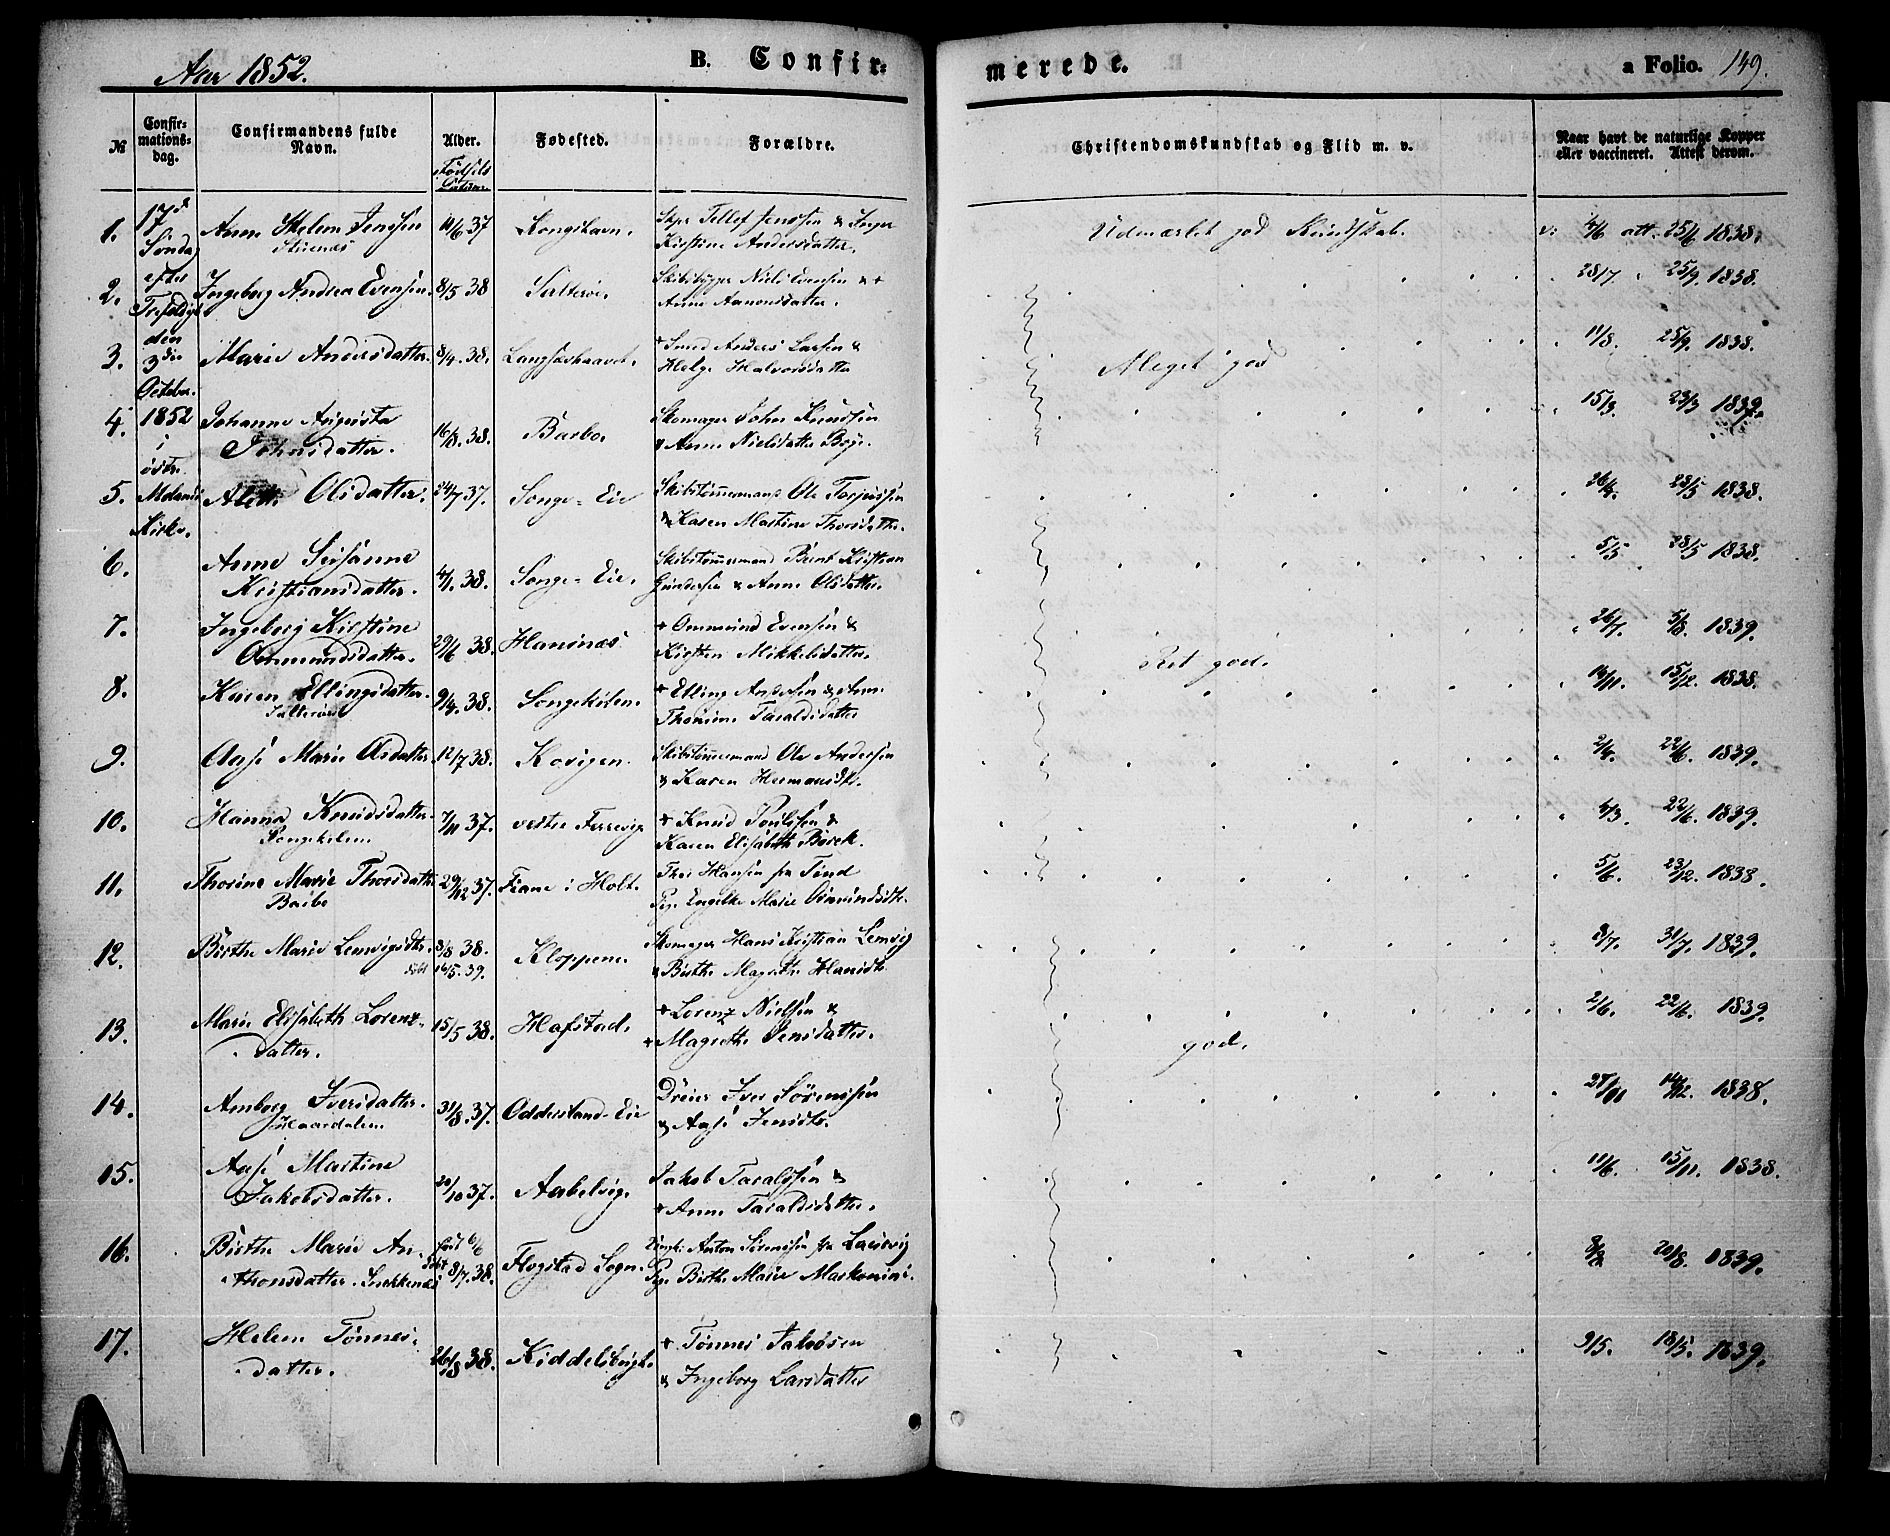 Aar 1852.
B. Confir=
merede.
a Folio. 149.
№
Confir=
mations=
dag.
Confirmandens fulde
Navn.
Alder.
Fødsels
Datum
Fødested.
Forældre.
Christendomskundskab og Flid m. v.
Naar havt de naturlige Kopper
eller vaccineret. Attest derom.
17de
Søndag
efter
Trefoldigh
den
3die
October.
1852
i
østre
Molands
Kirke.
1. Anne Helene Jenssen 37 Kongshavn. Tellef Jenssen & Inger
Kirstine Andersdatter. Udmærket god Kundskab. att. 25/6 1838.
2. Ingeborg Andrea Evensen. 8/5 38 Salterøe. Skibsbygger Niels Evensen & +
Anne Aamonsdatter. 28/7 25/9 1838.
3. Marie Andersdatter. 8/4. 38. + Smed Anders Larsen &
Helge Halvorsdatter Meget god 11/8. 25/9. 1838.
4. Johanne Augusta
Johnsdatter. 16/8. 38. Barbo. Skomager John Knudsen
& Anne Nielsdatter Boye. 15/3. 23/3 1839.
5. Olsdatter. 24/7 37. Songe-Eie Skibstømmermand Ole Terjussen
& Karen Martine Thorsdatter. 28/5 1838.
6. Anne Susanne
Kristiansdatter. 4/1. 38. Songe-Eie. Skibstømmermand Bernt Kristian
Gundersen & Anne Olsdatter. 5/5 28/5 1838.
7. Ingeborg Kirstine
Ommundsdatter. 29/6 38. Hansnæs + Ommund Evensen &
Kirsten Mikkelsdatter. Ret god. 26/7. 5/8. 1839.
8. Karen Ellingsdatter.
Salterøe 9/4. 38. Songekilen. + Elling Andersen & Ane
Thomine Taraldsdatter 15/12. 1838.
9. Aase Marie Olsdatter. 12/7 38. Kovigen Skibstømmermand Ole Andersen
& Karen Hermansdtr. 22/6. 1839.
10. Hanna Knudsdatter.
Songekilen 7/11 37. vestre Ferrevig + Knud Poulssen &
Karen Elisabeth Börck. 22/6. 1839.
11. Thorine Marie Thorsdatter
Barbo 29/12 37. Fiane i Holt. Thor Hansen fra
Pge. Engelke Marie 5/6. 23/12. 1838.
12. Birthe Marie Lemvigsdtr. 8/8 38.
døbt 16/5. 39. Kloppene Skomager Hans Kristian Lemvig
& Birthe Magrethe Hansdtr 8/7. 31/7. 1839.
13. Marie Elisabeth Lorenz-
datter. 15/5 38. Hafstad. + Lorenz Nielsen &
+ Magrethe Jensdatter. god. 2/6. 22/6. 1839.
14. Amborg Iversdatter. 31/8. 37. Odderstand-Eie Dreier Iver Sörenssen
& Aase Jensdtr. 27/11 14/12. 1838.
15. Aase Martine
Jakobsdatter. 20/10 37. Aabelvig. Jakob Taraldsen &
+ Anne Taraldsdatter. 11/6. 15/11. 1838.
16. Birthe Marie An-
thonsdatter. Snekkenæs født 6/6
døbt 8/7. 38. Flogstad Sogn. Anton Sörenssen fra Laurvig
Pge. Birthe Marie 20/8. 1839.
17. Helene Tönnes-
datter. 26/8 38. + Tönnes Jakobsen
& Ingeborg Larsdatter 9/5. 18/5. 1839.